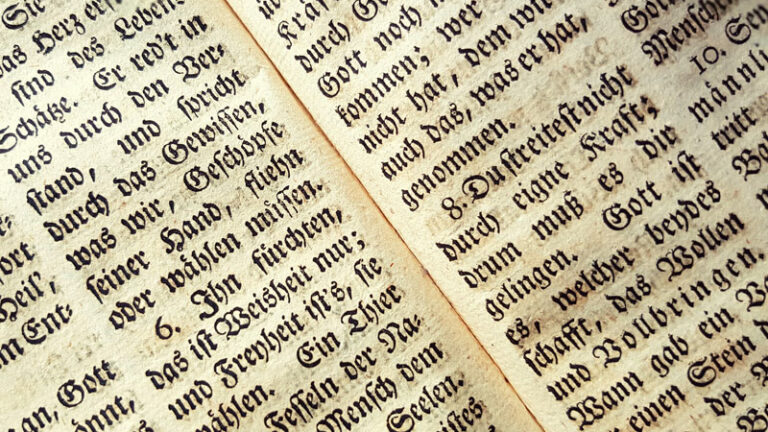 ort
Heil',
m Ent-
an, Gott
önnt,
Sie
das Herz
sind des Leben
Schätze. Er red't in
uns durch den Ver-
stand, und spricht
durch das Gewissen,
was wir, Geschöpfe
seiner Hand, fliehn
oder wählen müssen.
6. Ihn fürchten,
das ist Weisheit nur;
und Freyheit ist's, sie
wählen. Ein Thier
Fesseln der Na-
Mensch dem
Seelen.
Kraft
durch
Gott noch
kommen; wer
nicht hat, dem
auch das, was er hat,
genommen.
8. Du streitest nicht
durch eigne Kraft;
drum muß es dir
gelingen. Gott ist
es, welcher beydes
schafft, das Wollen
und Vollbringen.
Wann gab ein
einen Stein
der
Gott
Menschen
10.
männli
tritt